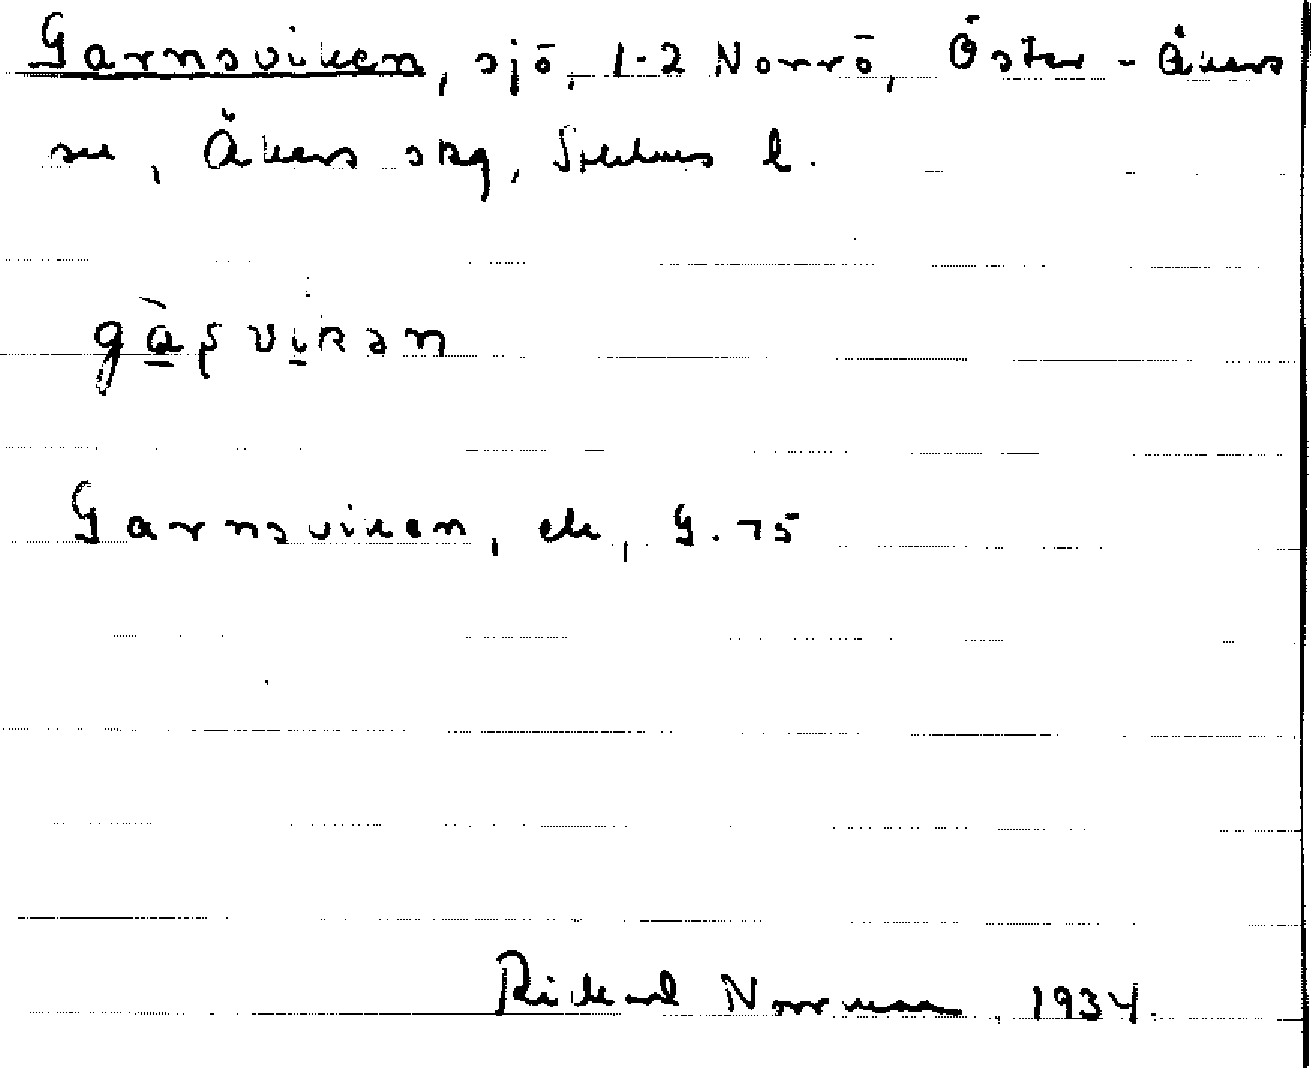 Garnsviken, sjö, 1-2 Norrö, Öster-Åkers
sn, Åkers skg, Sthlms l.
gàʂvikən
Garnsviken, ek, G. 75
Rickard Norrman, 1934.